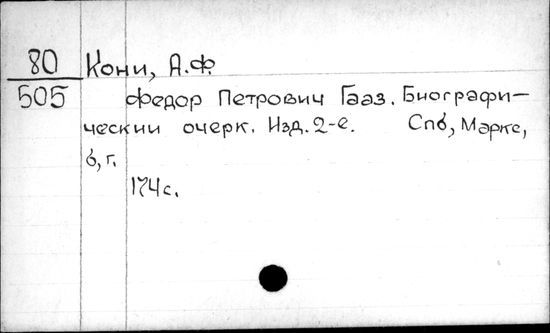 80
505
Кони, А.Ф.
Федор Петрович Гааз. Биографи-
ческии очерк. Изд. 2-е. Спб, Маркс,
б, г.
174с.